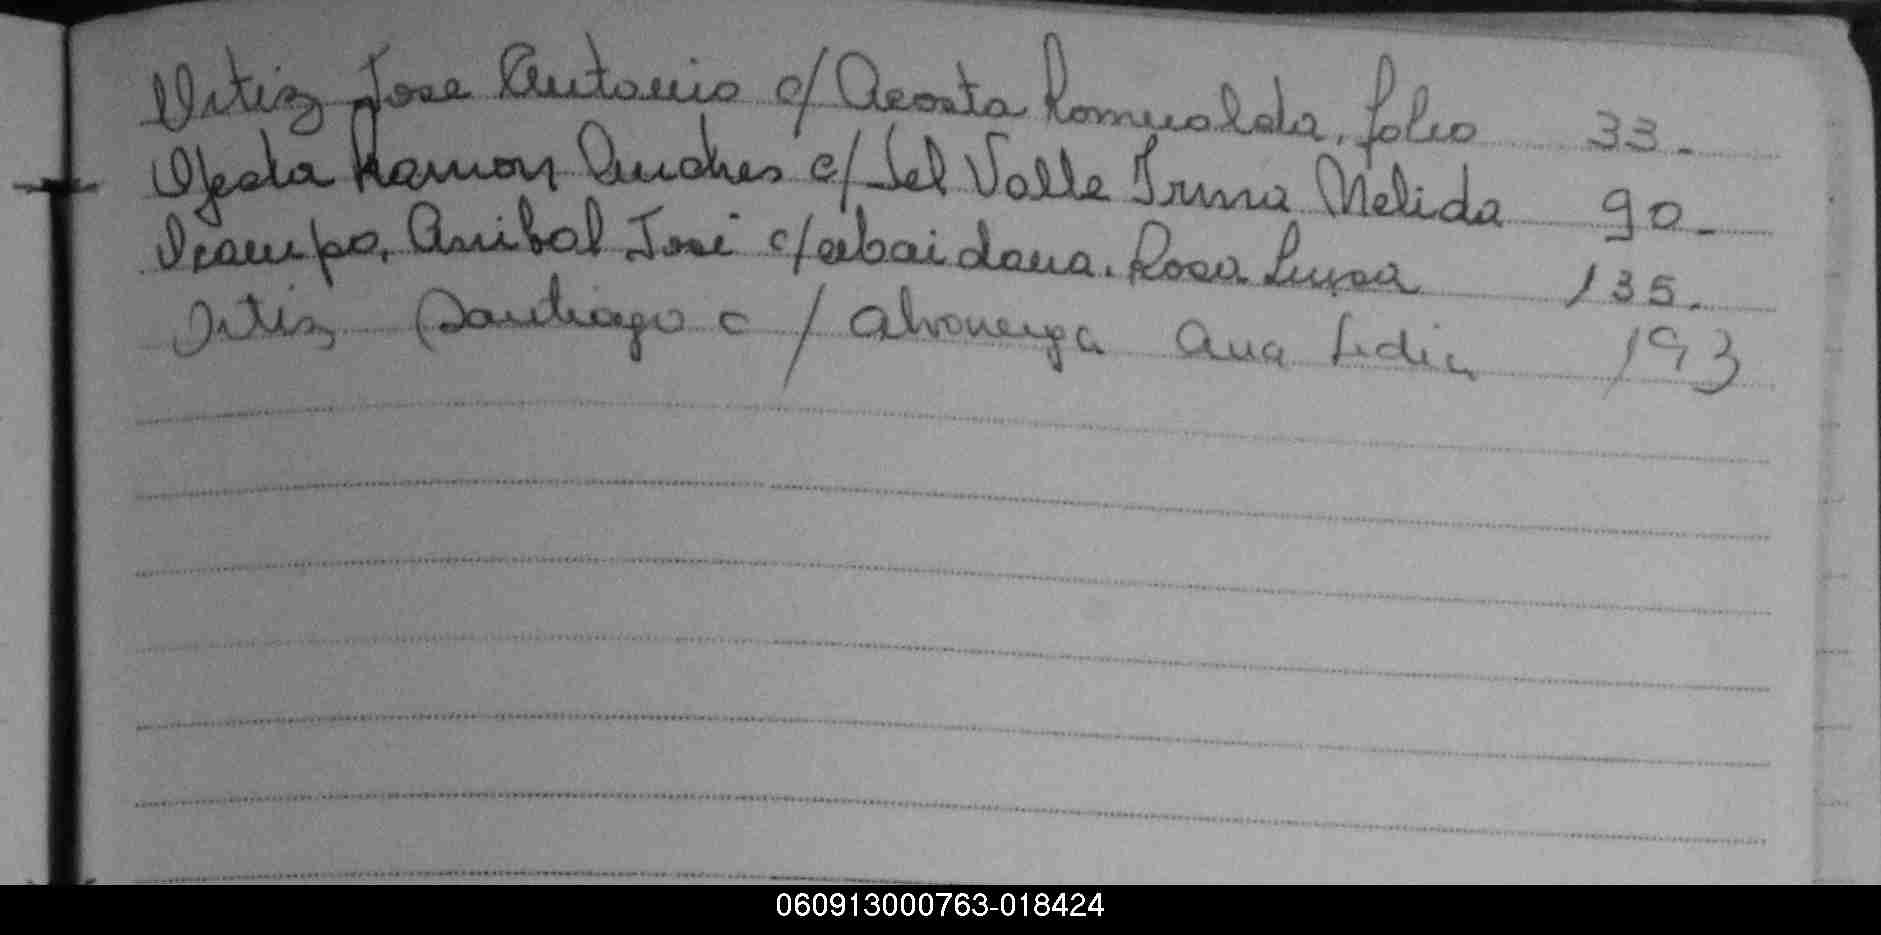 Ortiz Jose Antonio c/ Acosta Romualda, folio 33.
Ojeda Ramon Andres c/ Del Valle Irma Nelida 90.
Ocampo, Anibal José c/ abaidana. Rosa Luisa 135.
Ortiz Santiago c / Alvarenga Ana Lidia 193
060913000763-018424